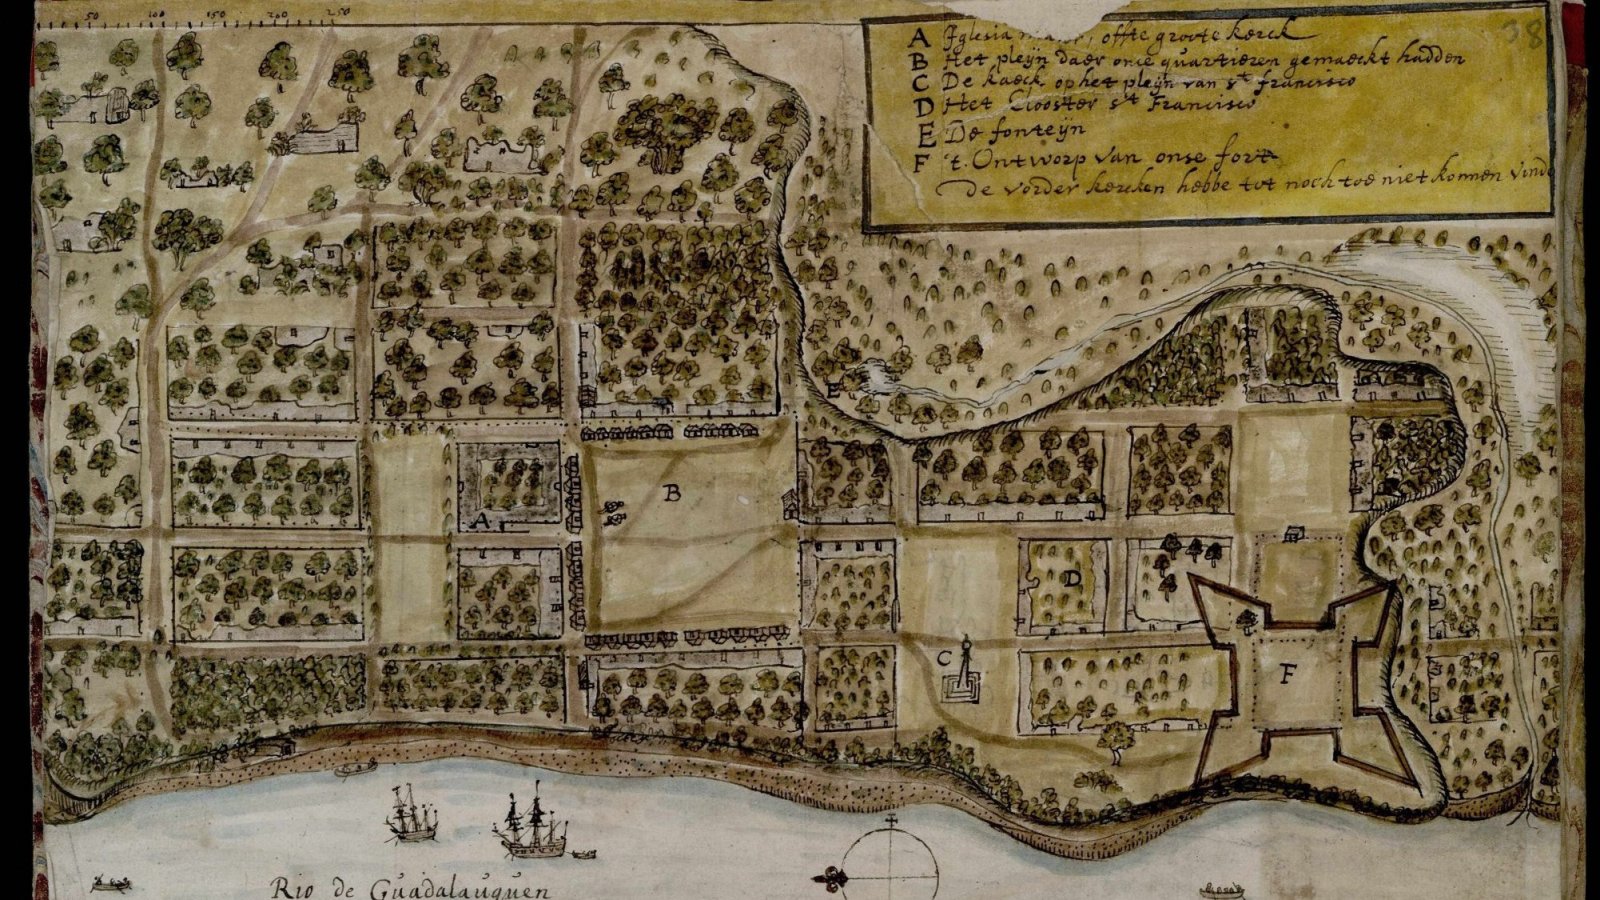 50 100 150 200 250
38
A Iglesia offte groote kerck
B Het pleijn daer onse quartieren gemaeckt hadden
C De kaeck op het pleijn van st francisco
D Het Clooster st Francisco
E De fonteijn
F 't Ontworp van onse fort
de vorder kercken hebbe tot noch toe niet konnen vind
E
B
A
D
C
F
Rio de Guadalauquen